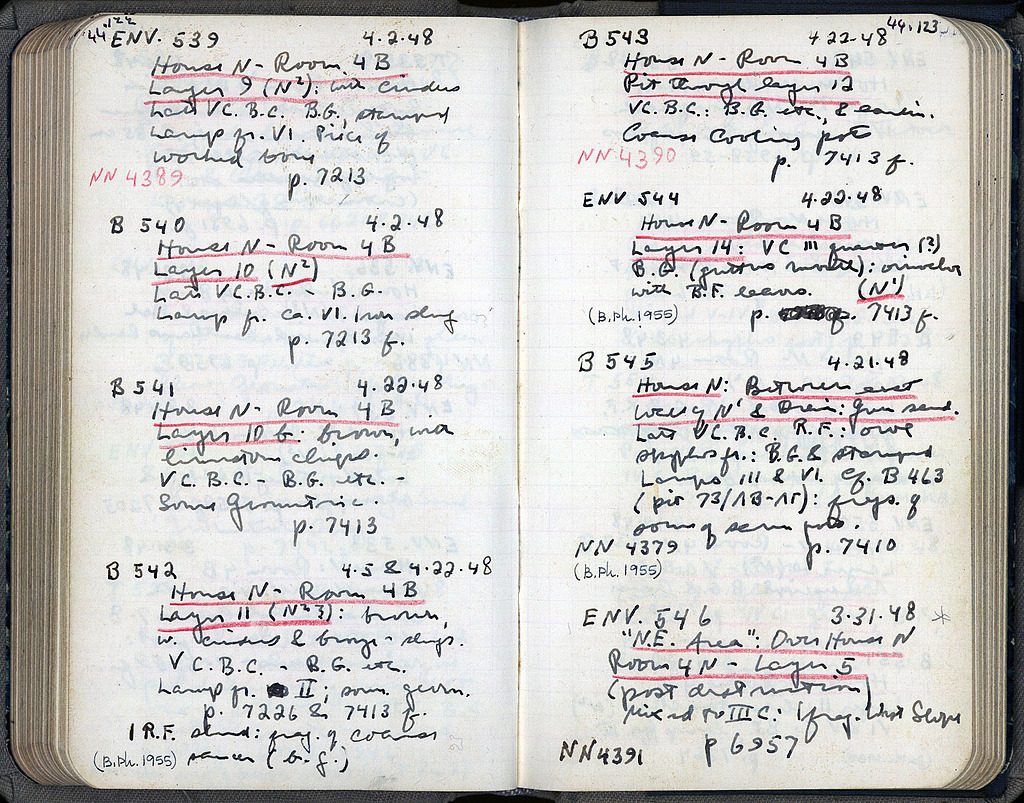 44.122
ENV. 539 4.2.48
House N - Room 4B
Layer 9 (N²): with cinders
Late V C. B.C. B.G., stamped
Lamp fr. VI. Piece of
worked bone
NN 4389 p. 7213
B 540 4.2.48
House N - Room 4B
Layer 10 (N²)
Late V C. B.C. - B.G.
Lamp fr. ca. VI. Iron slag
p. 7213 f.
B 541 4.22.48
House N - Room 4B
Layer 10 b: brown, with
limestone chips.
V C. B.C. - B.G. etc. -
Some Geometric.
p. 7413
B 542 4.5 & 4.22.48
House N - Room 4B
Layer 11 (N² 3): brown,
w. cinders & bronze - slags.
V C. B.C. - B.G. etc.
Lamp fr. II; some geom.
p. 7226 & 7413 f.
1 R.F. sherd: frag. of coarse
(B.Ph. 1955) saucer (b.g.)
44.123
B 543 4.22.48
House N - Room 4B
Pit through layer 12
V C. B.C.: B.G. etc., & earlier.
Coarse Cooking pots
NN 4390 p. 7413 f.
ENV. 544 4.22.48
House N - Room 4B
Layer 14: V C III quarter (?)
B.G. (guttus mouth): oinochoe
with B.F. leaves. (N')
(B.Ph. 1955) p. 7413 f.
B 545 4.21.48
House N: Between east
wall of N' & Drain: Gum sand.
Late V C. B.C. R.F.: owl
skyphos fr.: B.G. & stamped
Lamps III & VI. Cf. B 463
(pit 73/ΛΒ-ΛΓ): frags. of
some of same pots.
NN 4379 p. 7410
(B.Ph. 1955)
ENV. 546 3.31.48 *
"N.E. Area": Over House N
Room 4N - Layer 5
(post destruction)
Mixed to III C: 1 frag. West Slope
p 6957
NN4391